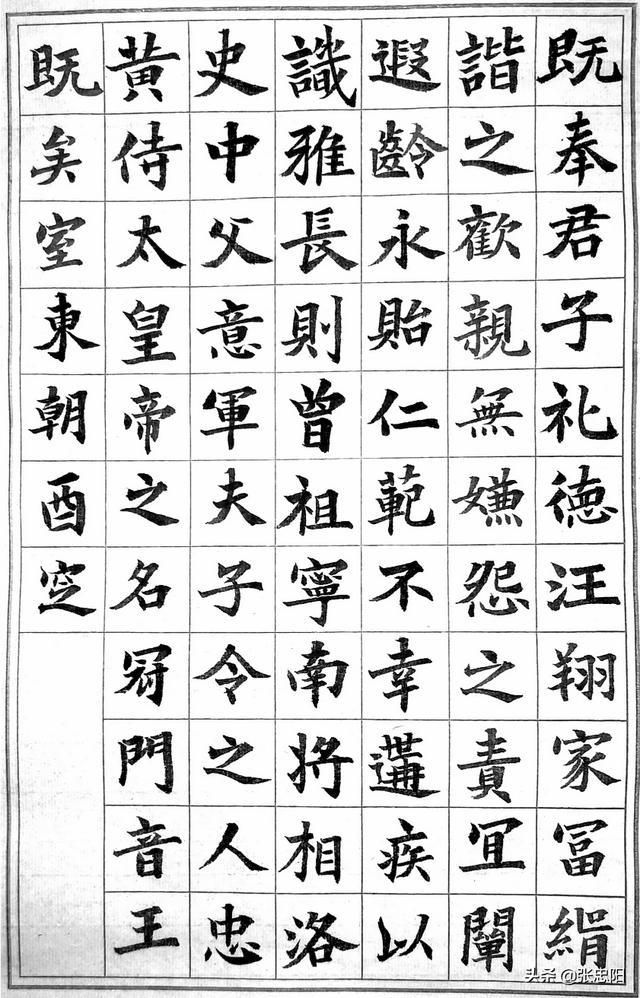 既奉君子礼徳汪翔家冨緝
諧之歡親無嫌怨之責冝闡
遐齡永貽仁範不幸遘疾以
識雅長則曾祖寧南将相洛
史中父意軍夫子令之人忠
黄侍太皇帝之名冠門音王
既矣室東朝酉窆
头条 @张忠阳